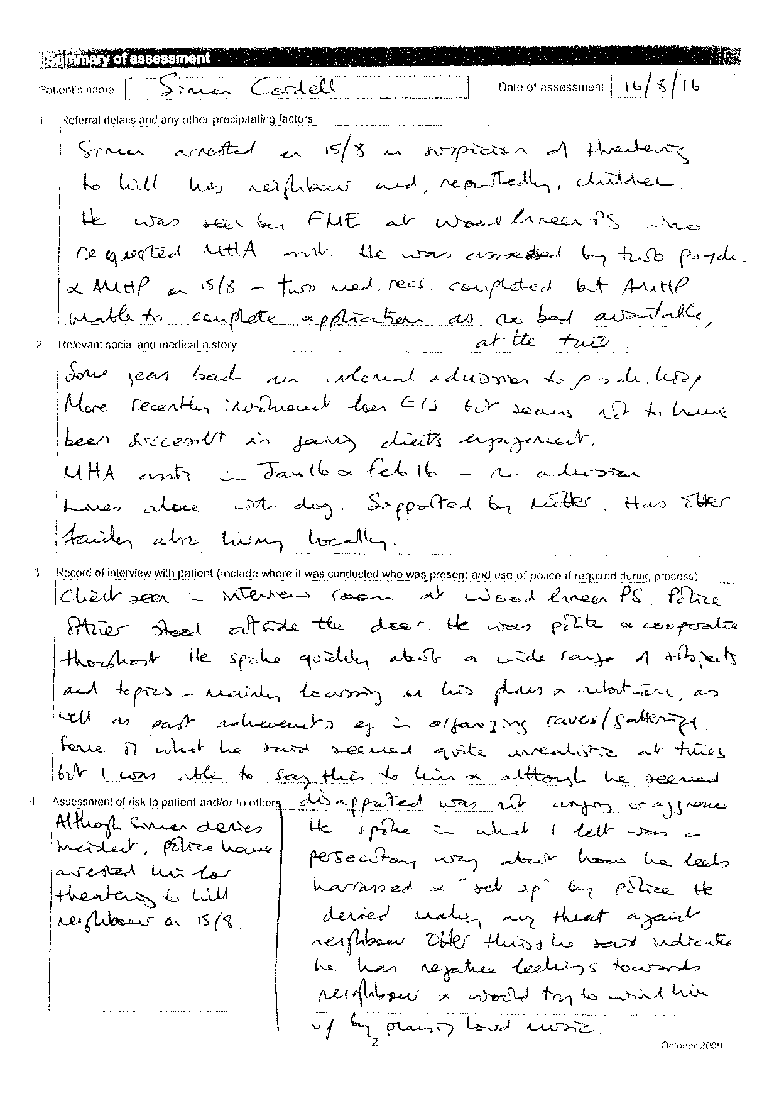 Summary of assessment
Patient's name Simon Cordell Date of assessment 16/8/16
1 Referral details and any other precipitating factors
Simon arrested on 15/8 on suspicion of threatening
to kill his neighbour and, reportedly, children.
He was seen by FME at Wood Green PS who
requested MHA. He was assessed by two psych.
& AMHP on 15/8 - two med. recs. completed but AMHP
unable to complete application as no bed available,
at the time
2 Relevant social and medical history
Some years back an informal admission to psych. hosp
More recently involvement from EIS but seems not to have
been successful in gaining client's engagement.
MHA in Jan 16 & Feb 16 - no admission
Lives alone with dog. Supported by Mother. Has other
family also living locally.
3 Record of interview with patient (include where it was conducted who was present and use of police if required during process)
Client seen in interview room at Wood Green PS. Police
Officer stood outside the door. He was polite & cooperative
throughout. He spoke quickly about a wide range of subjects
and topics - mainly focussing on his plans &, as
well as past achievements eg in organizing raves/gatherings.
Some of what he said seemed quite unrealistic at times
but I was able to say this to him & although he seemed
disappointed was not angry or aggressive
He spoke in what I felt was a
persecutory way about how he feels
harassed & "set up" by police He
denied making any threat against
neighbour Other things he said indicate
he has negative feelings towards
neighbour & would try to wind him
up by playing loud music.
4 Assessment of risk to patient and/or to others
Although Simon denies
incident, Police have
arrested him for
threatening to kill
neighbour on 15/8.
2
October 2009